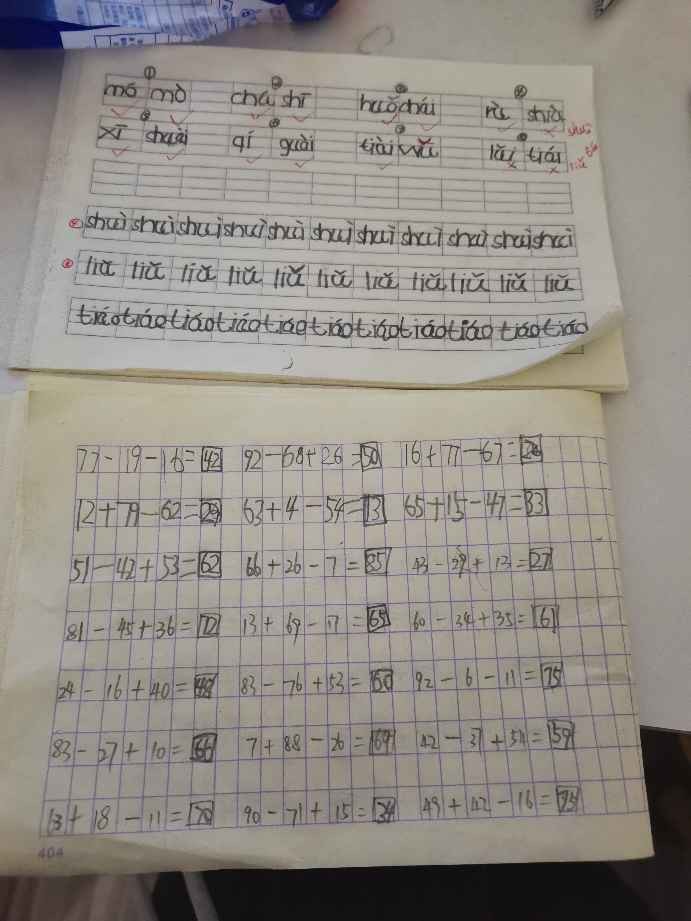 mó mò chá shī huǒ chái
xī shuài qí guài
shuì shuì shuì shuì shuì shuì shuì shuì shuì shuì shuì
liǔ liǔ liǔ liǔ liǔ liǔ liǔ liǔ liǔ liǔ liǔ
tiáo tiáo tiáo tiáo tiáo tiáo tiáo tiáo tiáo tiáo tiáo
77-19-16=42 92-68+26=50 16+77-67=26
12+79-62=29 63+4-54=13 65+15-47=33
51-42+53=62 66+26-7=85 43-29+13=27
81-45+36=72 13+69-17=65 60-34+35=61
24-16+40=48 83-76+53=60 92-6-11=75
83-27+10=66 7+88-26=69 42-37+54=59
13+18-11=20 90-71+15=34 49+42-16=75
404